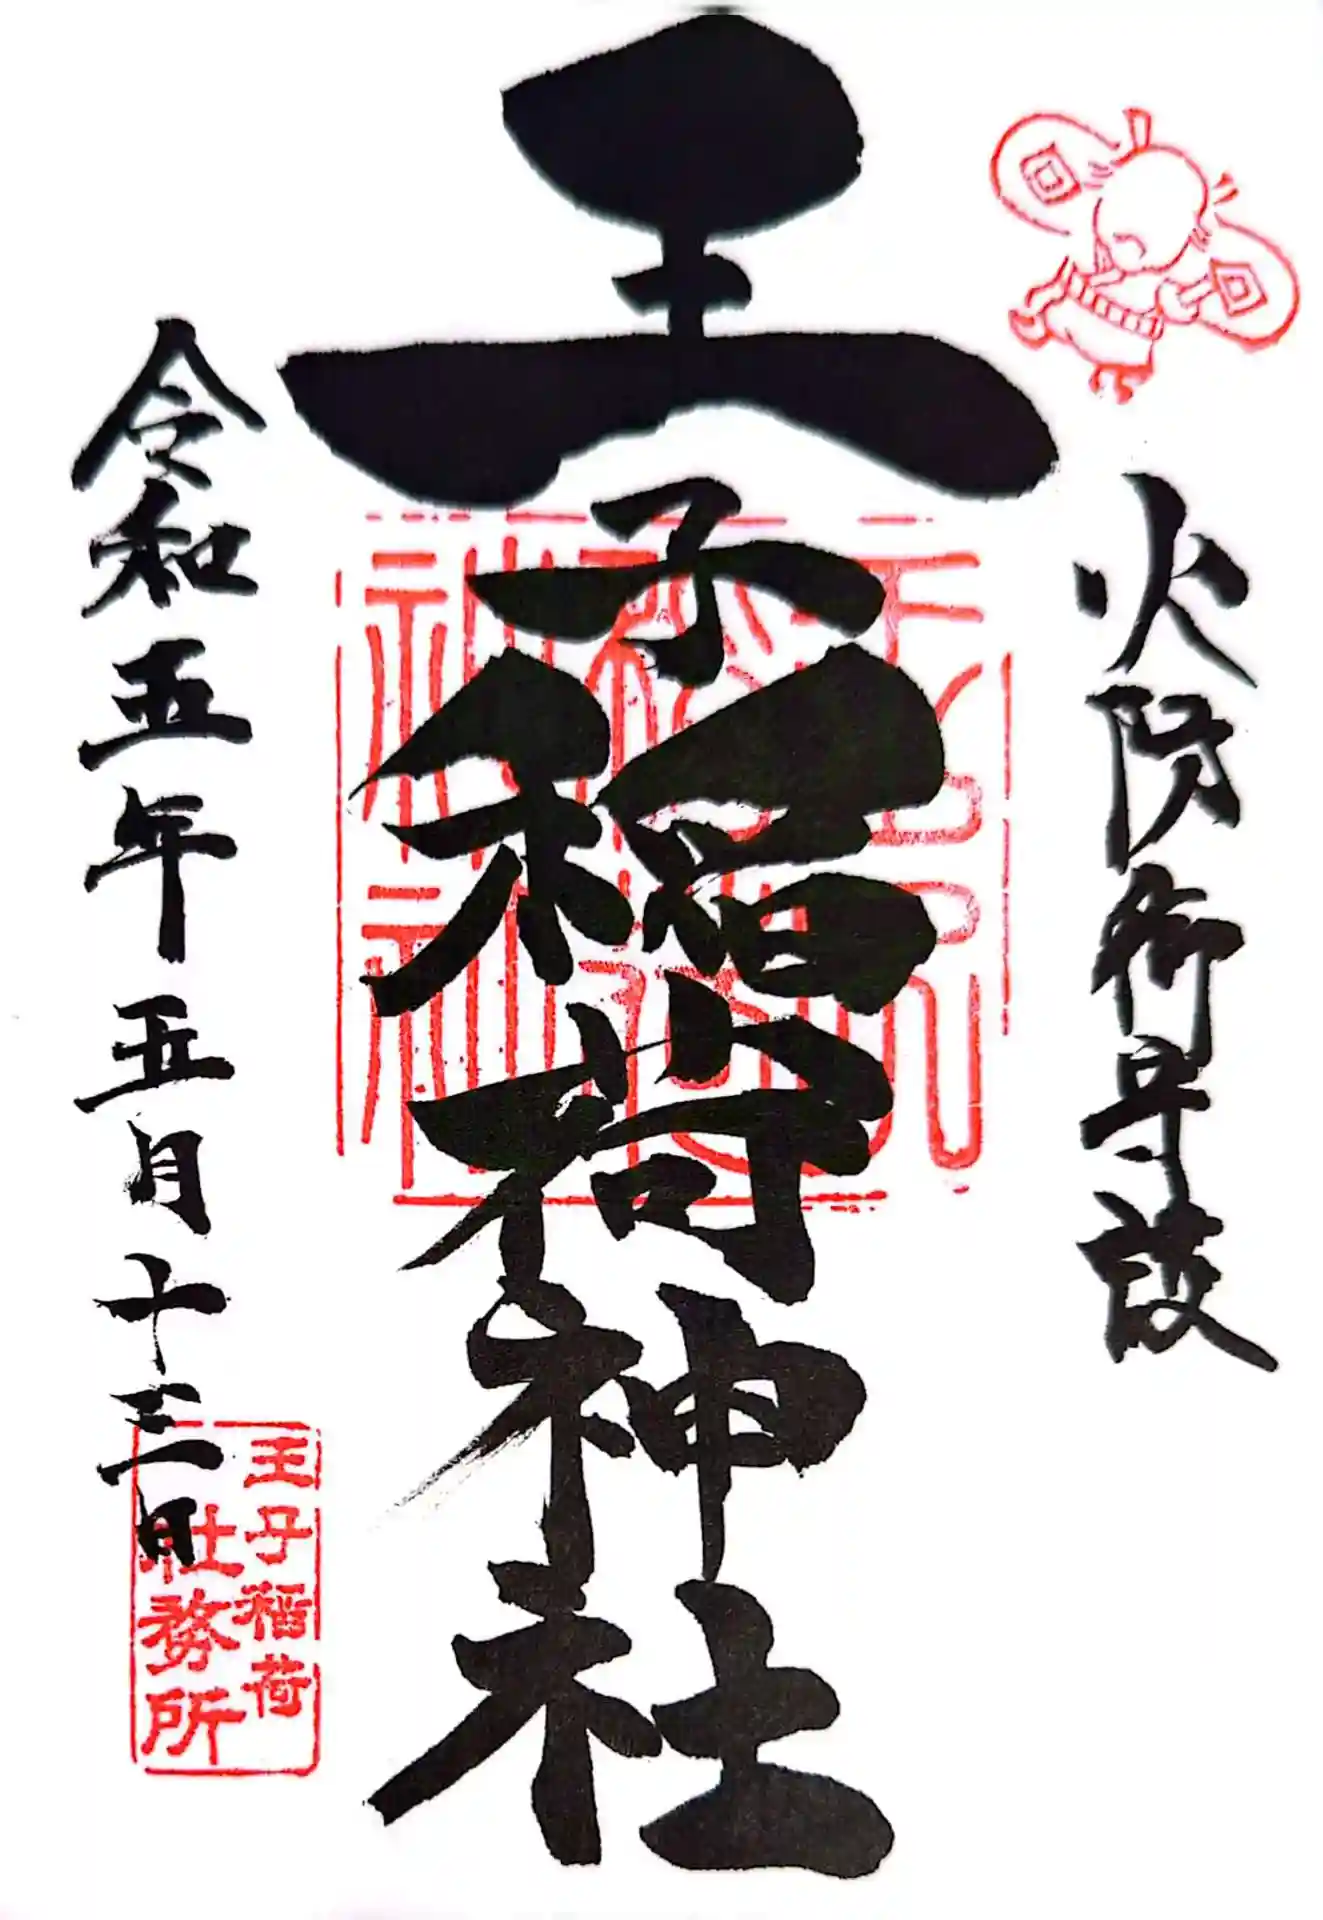 火防御守護
王子稲荷神社
令和五年五月十三日
王子稲荷
社務所